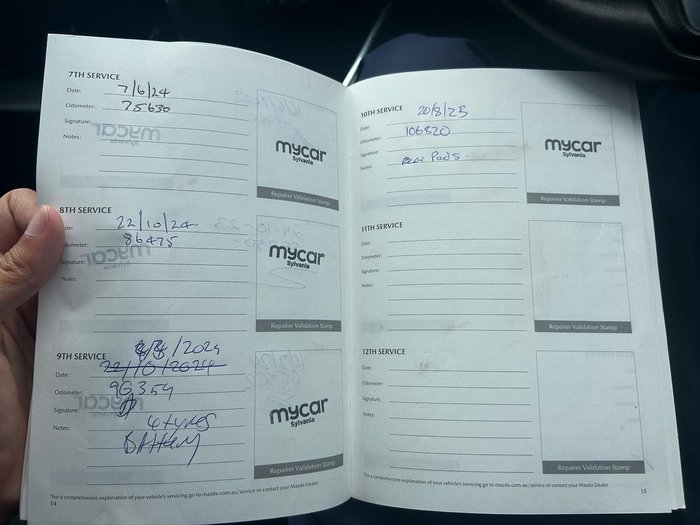 7TH SERVICE
Date: 7/6/24
Odometer: 75630
Signature:
Notes:
mycar
Sylvania
Repairer Validation Stamp
8TH SERVICE
Date: 22/10/24
Odometer: 86475
Signature:
Notes:
mycar
Sylvania
Repairer Validation Stamp
9TH SERVICE
/2024
Date: 22/10/2024
Odometer: 96354
Signature:
Notes: 4 tyres
Battery
mycar
Sylvania
Repairer Validation Stamp
*For a comprehensive explanation of your vehicle's servicing go to mazda.com.au/service or contact your Mazda Dealer
14
10TH SERVICE
20/8/25
Date:
Odometer: 106820
Signature:
Notes: Rear Pads.
mycar
Sylvania
Repairer Validation Stamp
11TH SERVICE
Date:
Odometer:
Signature:
Notes:
Repairer Validation Stamp
12TH SERVICE
Date:
Odometer:
Signature:
Notes:
Repairer Validation Stamp
*For a comprehensive explanation of your vehicle's servicing go to mazda.com.au/service or contact your Mazda Dealer
15